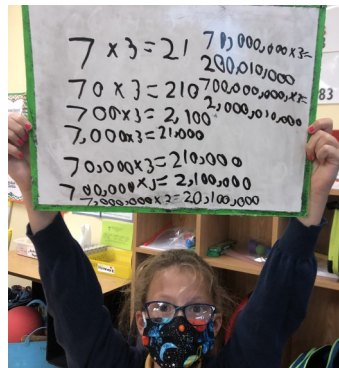 7 x 3 = 21
70 x 3 = 210
700x3 = 2,100
7,000x3=21,000
70,000x3=210,000
700,000x3= 2,100,000
7,000,000x3=20,100,000
70,000,000x3=
200,010,000
700,000,000,x3=
2,000,010,000
83